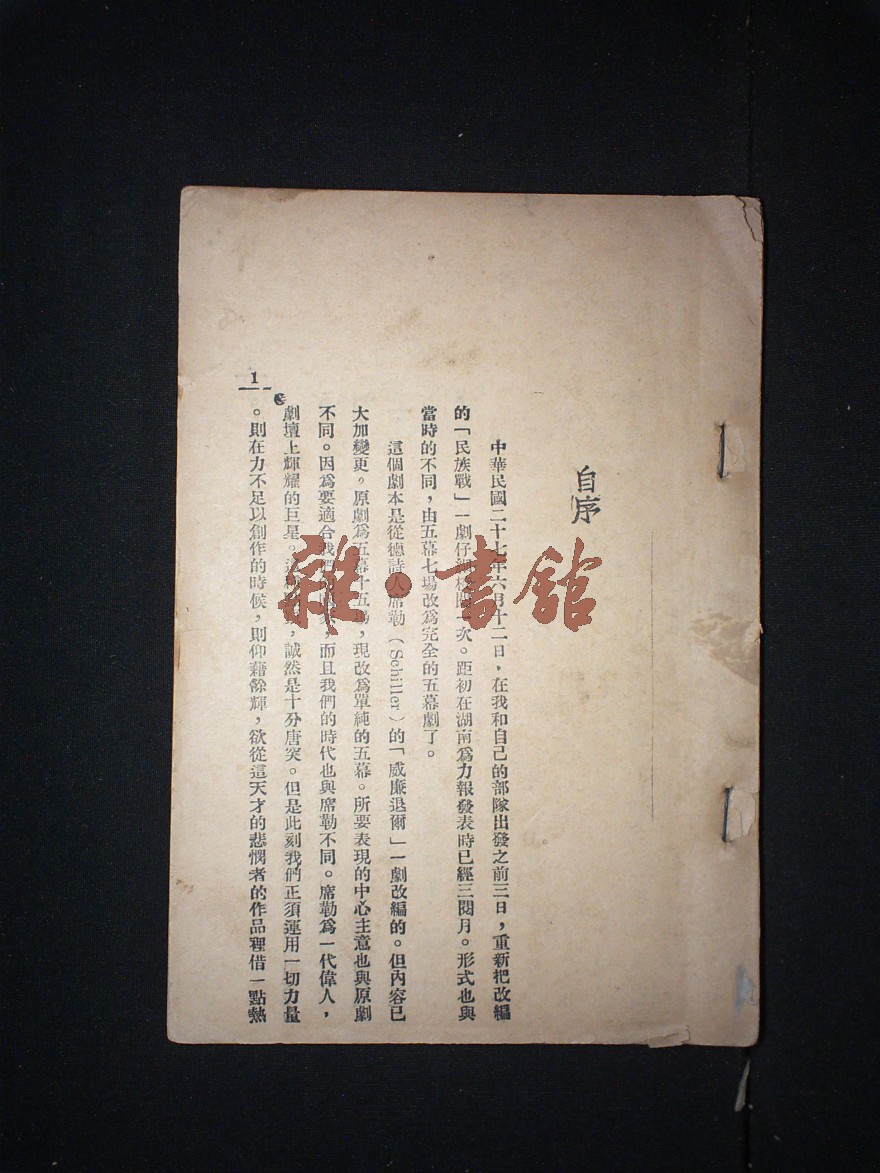 自序
中華民國二十七年六月十二日，在我和自己的部隊出發之前三日，重新把改編
的「民族戰」一劇仔細校閱一次。距初在湖南爲力報發表時已經三閱月。形式也與
當時的不同，由五幕七場改爲完全的五幕劇了。
這個劇本是從德詩人席勒（Schiller）的「威廉退爾」一劇改編的。但內容已
大加變更。原劇爲五幕十五場，現改爲單純的五幕。所要表現的中心主意也與原劇
不同。因爲要適合我們，而且我們的時代也與席勒不同。席勒爲一代偉人，
劇壇上輝耀的巨星。這，誠然是十分唐突。但是此刻我們正須運用一切力量
。則在力不足以創作的時候，則仰藉餘輝，欲從這天才的悲憫者的作品裡借一點熱
1
雜·書館